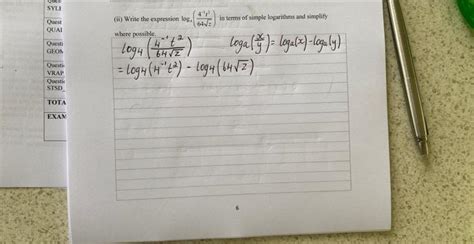 SYLI
Quest
QUAI
Questi
GEOM
Questi
VRAP
Questi
STSD_
TOTA
EXAM
(ii) Write the expression log₄(4⁻¹t²/64√z) in terms of simple logarithms and simplify
where possible.
log₄(4⁻¹t²/64√z) logₐ(x/y) = logₐ(x) - logₐ(y)
= log₄(4⁻¹t²) - log₄(64√z)
6